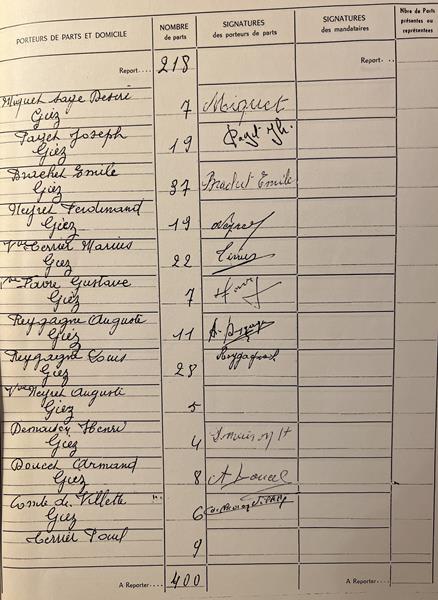 PORTEURS DE PARTS ET DOMICILE
NOMBRE de parts
SIGNATURES des porteurs de parts
SIGNATURES des mandataires
Nbre de Parts présentes ou représentées
Report.... 218 Report....
Giez 7 Miquet
Payet Joseph
Giez 19 Payet Jh.
Brachet Emile
Giez 37 Brachet Emile
Neyret Ferdinand
Giez 19
Vve Terrier Marius
Giez 22
Vve Favre Gustave
Giez 7
Reygagne Auguste
Giez 11
Reygagne Louis
Giez 28
Vve Neyret Auguste
Giez 5
Demaison Henri
Giez 4
Doucet Armand
Giez 8
Comte de Villette
Giez 6
Terrier Paul
9
A Reporter.... 400 A Reporter....